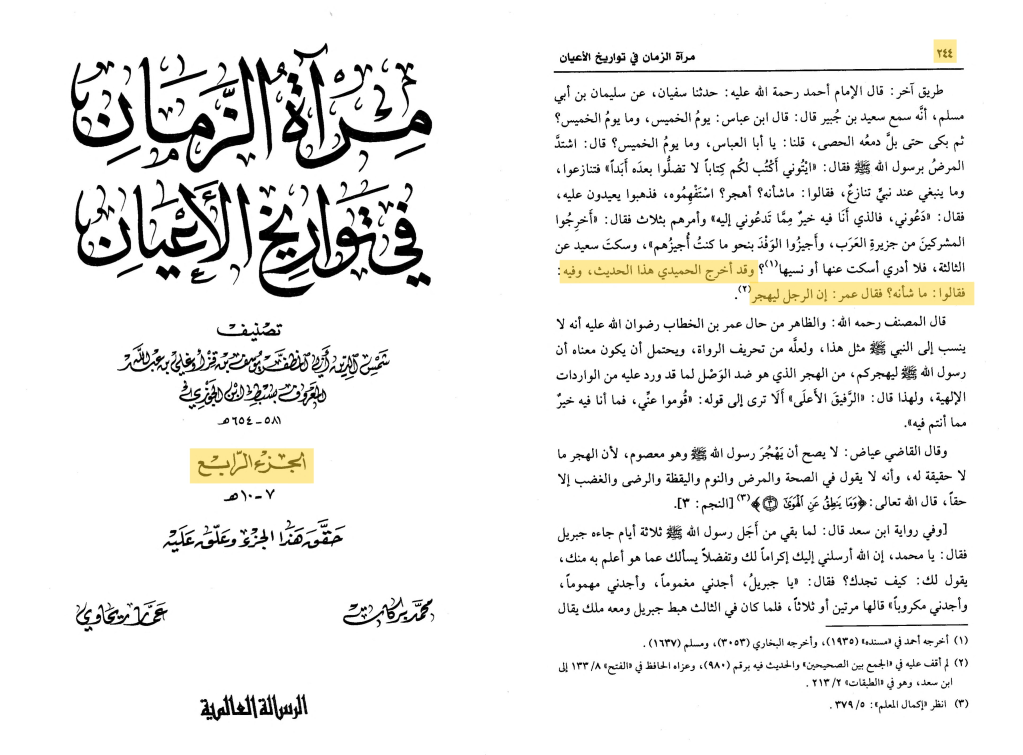 مرآة الزمان
في تواريخ الأعيان
تصنيف
شمس الدين أبي المظفر يوسف بن قزأوغلي بن عبد الله
المعروف بسبط ابن الجوزي
٥٨١ - ٦٥٤ هـ
الجزء الرابع
٧ - ١٠ هـ
حقق هذا الجزء وعلق عليه
محمد بركات
عمار ريحاوي
الرسالة العالمية
٢٤٤
مرآة الزمان في تواريخ الأعيان
طريق آخر: قال الإمام أحمد رحمة الله عليه: حدثنا سفيان، عن سليمان بن أبي
مسلم، أنَّه سمع سعيد بن جُبير قال: قال ابن عباس: يومُ الخميس، وما يومُ الخميس؟
ثم بكى حتى بلَّ دمعُه الحصى، قلنا: يا أبا العباس، وما يومُ الخميس؟ قال: اشتدَّ
المرضُ برسول الله ﷺ فقال: «ايْتُوني أَكْتُب لكُم كِتاباً لا تضلُّوا بعدَه أَبَداً» فتنازعوا،
وما ينبغي عند نبيٍّ تنازعٌ، فقالوا: ماشأنه؟ أهجر؟ اسْتَفْهِمُوه، فذهبوا يعيدون عليه،
فقال: «دَعُوني، فالذي أَنَا فيه خيرٌ مِمَّا تَدعُوني إليه» وأمرهم بثلاث فقال: «أَخرِجُوا
المشركينَ من جزيرةِ العَرَب، وأَجيزُوا الوَفْدَ بنحو ما كنتُ أُجيزُهم»، وسكتَ سعيد عن
الثالثة، فلا أدري أسكت عنها أو نسيها(١)؟ وقد أخرج الحميدي هذا الحديث، وفيه:
فقالوا: ما شأنه؟ فقال عمر: إن الرجل ليهجر(٢).
قال المصنف رحمه الله: والظاهر من حال عمر بن الخطاب رضوان الله عليه أنه لا
ينسب إلى النبي ﷺ مثل هذا، ولعلَّه من تحريف الرواة، ويحتمل أن يكون معناه أن
رسول الله ﷺ ليهجركم، من الهجر الذي هو ضد الوَصْل لما قد ورد عليه من الواردات
الإلهية، ولهذا قال: «الرَّفيقَ الأَعلَى» أَلَا ترى إلى قوله: «قُوموا عنِّي، فما أنا فيه خيرٌ
مما أنتم فيه».
وقال القاضي عياض: لا يصح أن يَهْجُرَ رسول الله ﷺ وهو معصوم، لأن الهجر ما
لا حقيقة له، وأنه لا يقول في الصحة والمرض والنوم واليقظة والرضى والغضب إلا
حقاً، قال الله تعالى: ﴿وَمَا يَنطِقُ عَنِ الْهَوَىٰ ۝٣﴾(٣) [النجم: ٣].
[وفي رواية ابن سعد قال: لما بقي من أَجَل رسول الله ﷺ ثلاثة أيام جاءه جبريل
فقال: يا محمد، إن الله أرسلني إليك إكراماً لك وتفضلاً يسألك عما هو أعلم به منك،
يقول لك: كيف تجدك؟ فقال: «يا جبريلُ، أجدني مغموماً، وأجدني مهموماً،
وأجدني مكروباً» قالها مرتين أو ثلاثاً، فلما كان في الثالث هبط جبريل ومعه ملك يقال
(١) أخرجه أحمد في «مسنده» (١٩٣٥)، وأخرجه البخاري (٣٠٥٣)، ومسلم (١٦٣٧).
(٢) لم أقف عليه في «الجمع بين الصحيحين» والحديث فيه برقم (٩٨٠)، وعزاه الحافظ في «الفتح» ١٣٣/٨ إلى
ابن سعد، وهو في «الطبقات» ٢١٣/٢.
(٣) انظر «إكمال المعلم»: ٣٧٩/٥.